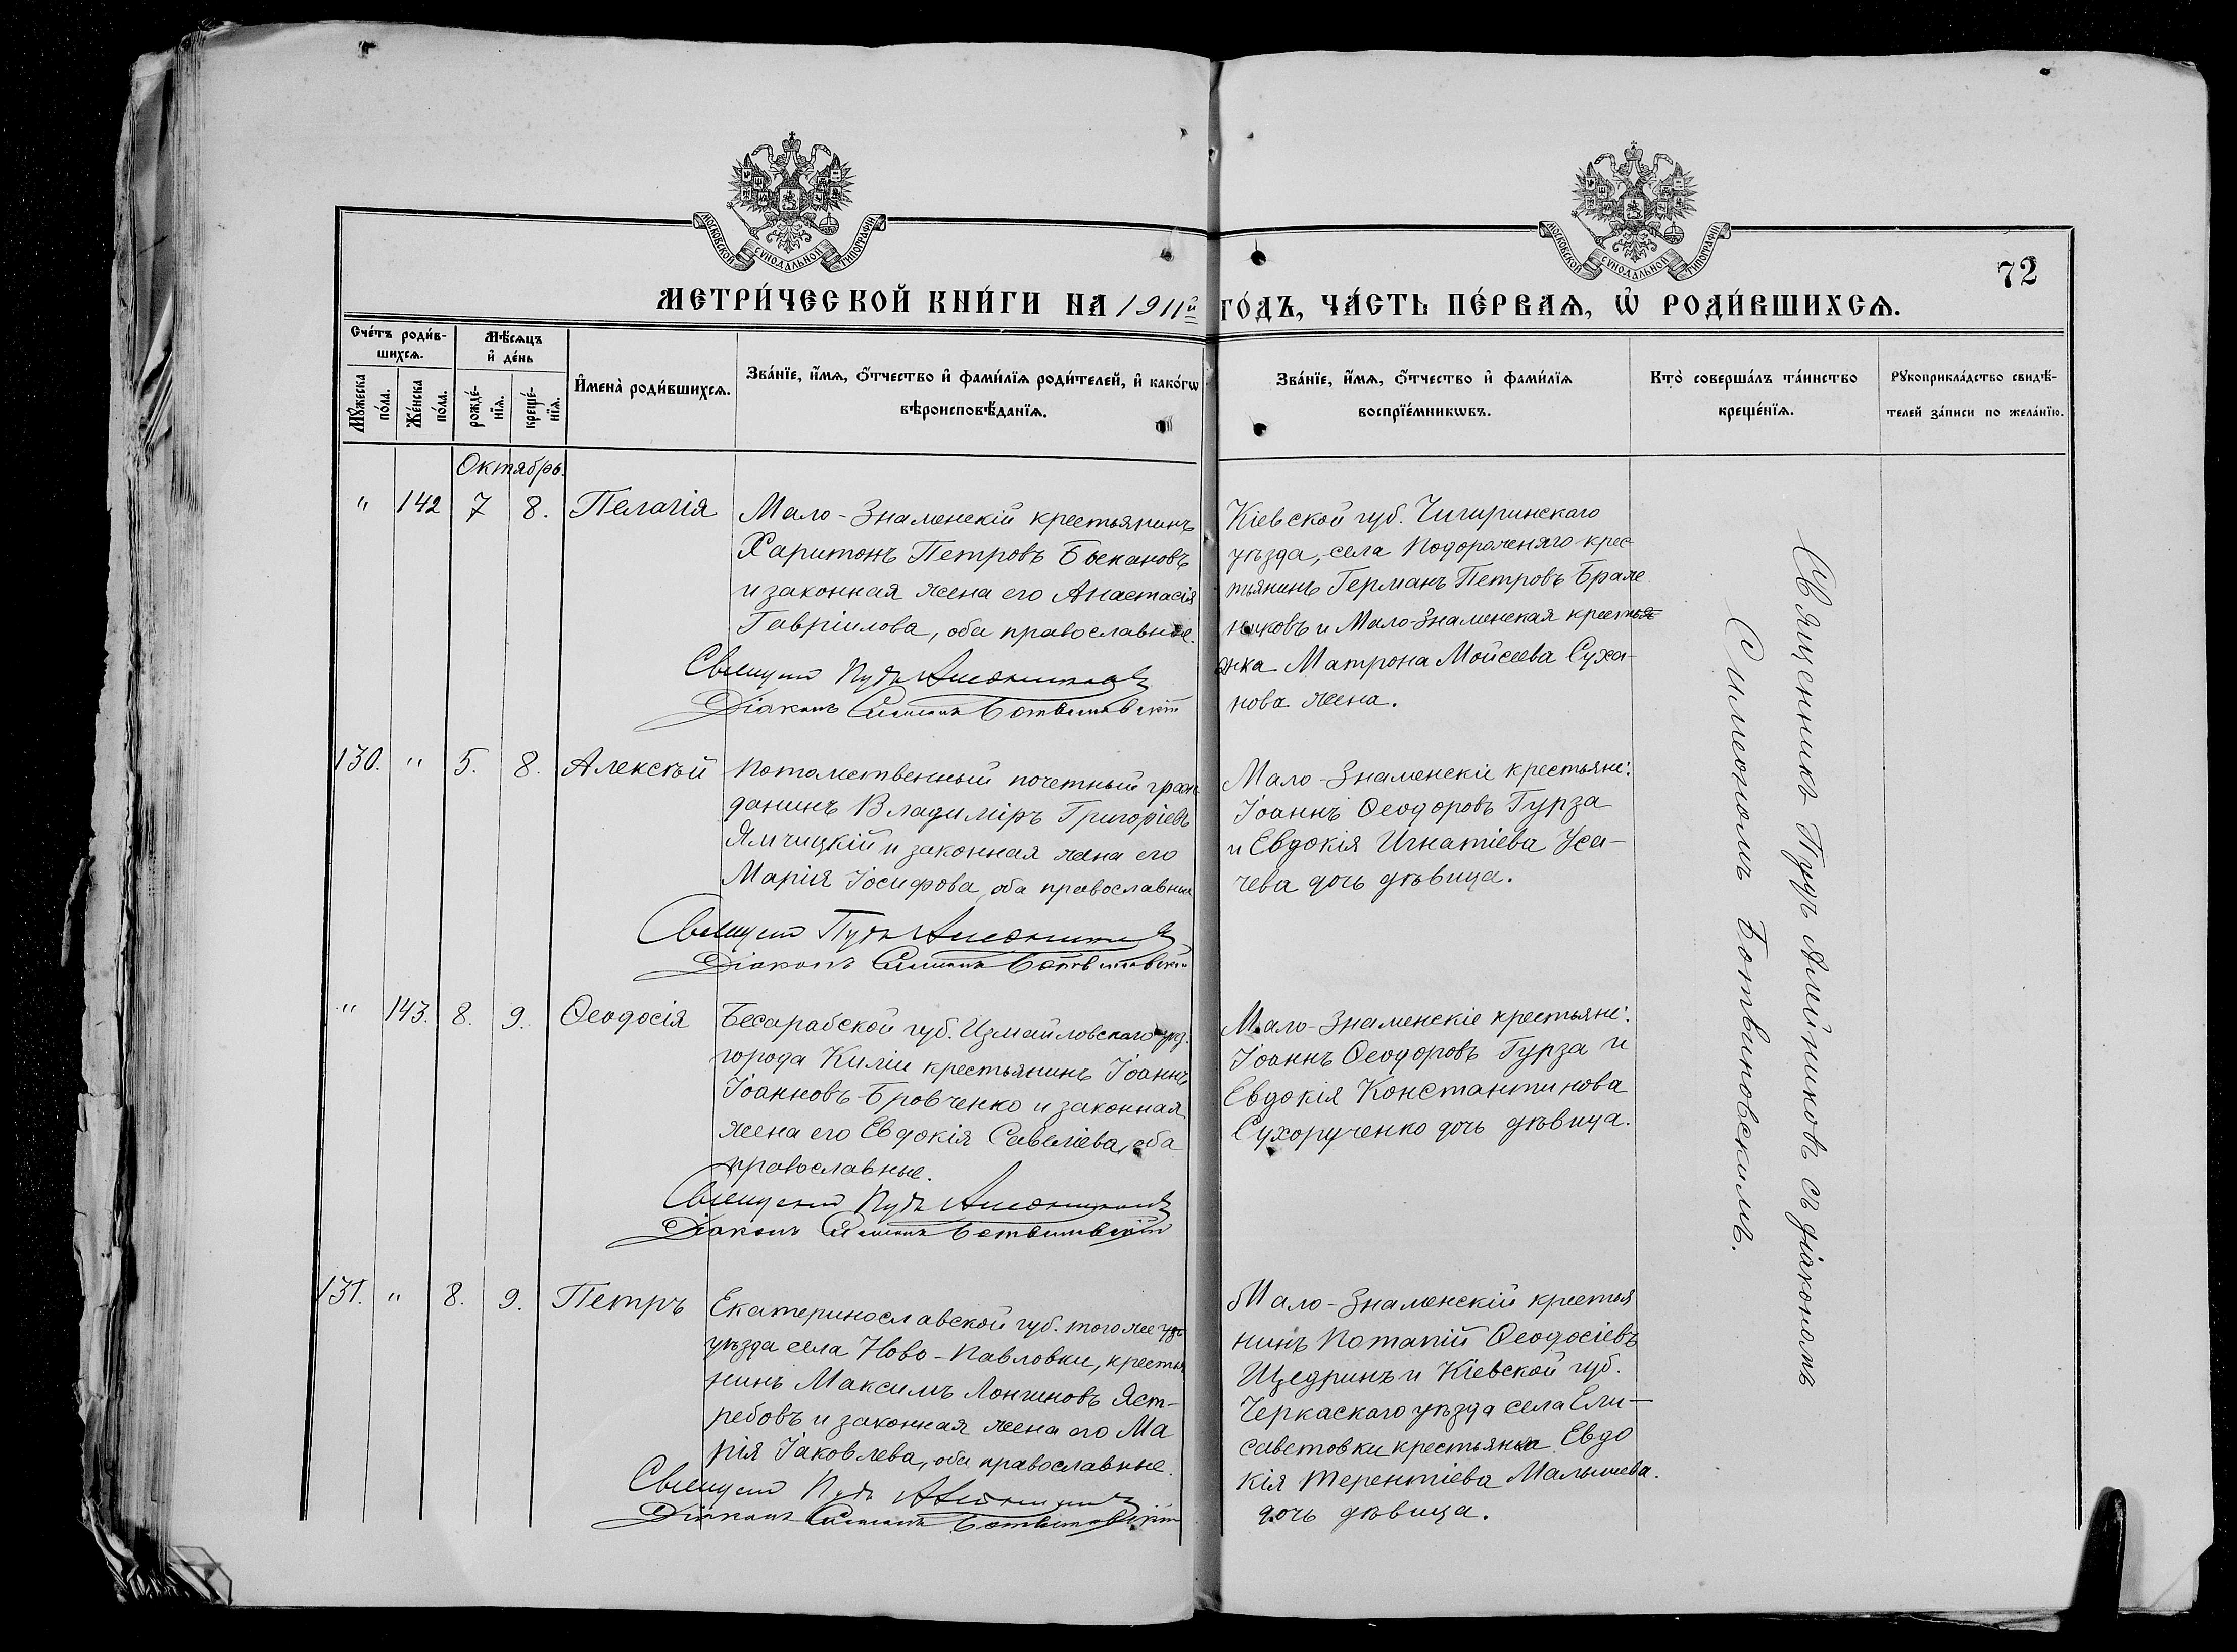 МОСКОВСКОЙ СУНОДАЛЬНОЙ ТИПОГРАФІИ
МОСКОВСКОЙ СУНОДАЛЬНОЙ ТИПОГРАФІИ
72
МЕТРИ́ЧЕСКОЙ КНИ́ГИ НА 1911й ГО́ДЪ, ЧА́СТЬ ПЕ́РВАѦ, Ѡ҆ РОДИ́ВШИХСѦ.
Сче́тъ роди́в-
шихсѧ.
Мꙋ́жеска
по́ла.
Же́нска
по́ла.
Мѣ́сѧцъ
и҆ де́нь
рожде́-
нїѧ.
креще́-
нїѧ.
И҆мена̀ роди́вшихсѧ.
Зва́нїе, и҆́мѧ, ѻ҆́тчество и҆ фами́лїѧ роди́телей, и҆ како́гѡ
вѣроисповѣ́данїѧ.
Зва́нїе, и҆́мѧ, ѻ҆́тчество и҆ фами́лїѧ
воспрїе́мникѡвъ.
Кто̀ соверша́лъ та́инство
креще́нїѧ.
Рꙋкоприкла́дство свидѣ́-
телей за́писи по жела́нїю.
Октябрь.
" 142 7 8. Пелагія
Мало-Знаменскій крестьянинъ
Харитонъ Петровъ Боскановъ
и законная жена его Анастасія
Гавріилова, оба православные.
Священ Пудъ
Діаконъ Симеонъ Ботвиновскій
Кіевской губ. Чигиринскаго
уѣзда, села крес-
тьянинъ Германъ Петровъ Браже
никовъ и Мало-Знаменская крестья
нка Матрона Мойсеева Суха-
нова жена.
130. " 5. 8. Алексѣй
Потомственный почетный граж
данинъ Владиміръ Григоріевъ
Ямчицкій и законная жена его
Марія Іосифова, оба православные
Священ Пудъ
Діаконъ Симеонъ Ботвиновскій
Мало-Знаменскіе крестьяне:
Іоаннъ Ѳеодоровъ Гурза
и Евдокія Игнатіева Уса-
чева дочь дѣвица.
" 143. 8. 9. Ѳеодосія
Бесарабской губ. Измаиловскаго уѣз.
города Киліи крестьянинъ Іоаннъ
Іоанновъ Бровченко и законная
жена его Евдокія Савеліева, оба
православные.
Священ Пудъ
Діаконъ Симеонъ Ботвиновскій
Мало-Знаменскіе крестьяне:
Іоаннъ Ѳеодоровъ Гурза и
Евдокія Константинова
Сухорученко дочь дѣвица.
131. " 8. 9. Петръ
Екатеринославской губ. того же
уѣзда села Ново-Павловки, крестья
нинъ Максимъ Лонгиновъ Яст-
ребовъ и законная жена его Ма
рія Іаковлева, оба православные.
Священ Пудъ
Діаконъ Симеонъ Ботвиновскій
Мало-Знаменскій крестья
нинъ Потапій Ѳеодосіевъ
Щедринъ и Кіевской губ.
Черкаскаго уѣзда села Ели-
саветовки крестьянка Евдо
кія Терентіева Малышева.
дочь дѣвица.
Священникъ Пудъ Алейниковъ съ діакономъ
Симеономъ Ботвиновскимъ.